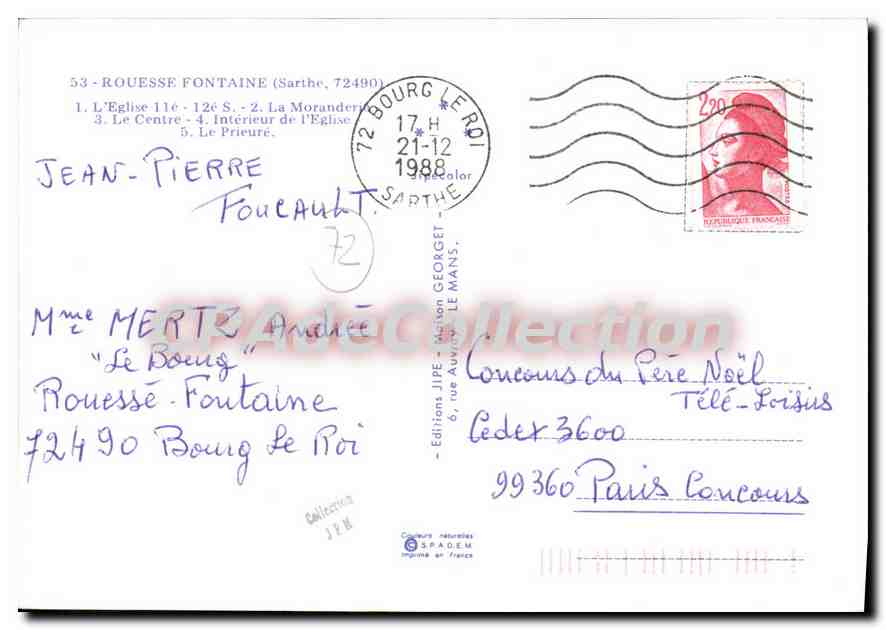 53 - ROUESSE FONTAINE (Sarthe, 72490)
1. L'Eglise 11é - 12é S. - 2. La Moranderie
3. Le Centre - 4. Intérieur de l'Eglise
5. Le Prieuré.
72 BOURG LE ROI
17 H
21-12
1988
SARTHE
Jipécolor
2,20
REPUBLIQUE FRANÇAISE
JEAN-PIERRE
FOUCAULT.
72
Mme MERTZ Andrée
"Le Bourg"
Rouessé-Fontaine
72490 Bourg Le Roi
- Editions JIPE - Maison GEORGET -
6, rue Auvray, LE MANS.
CPAdeCollection
Concours du Père Noël
Télé-Loisirs
Cedex 3600
99360 Paris Concours
Collection
J P N
Couleurs naturelles
© S.P.A.D.E.M.
Imprimé en France